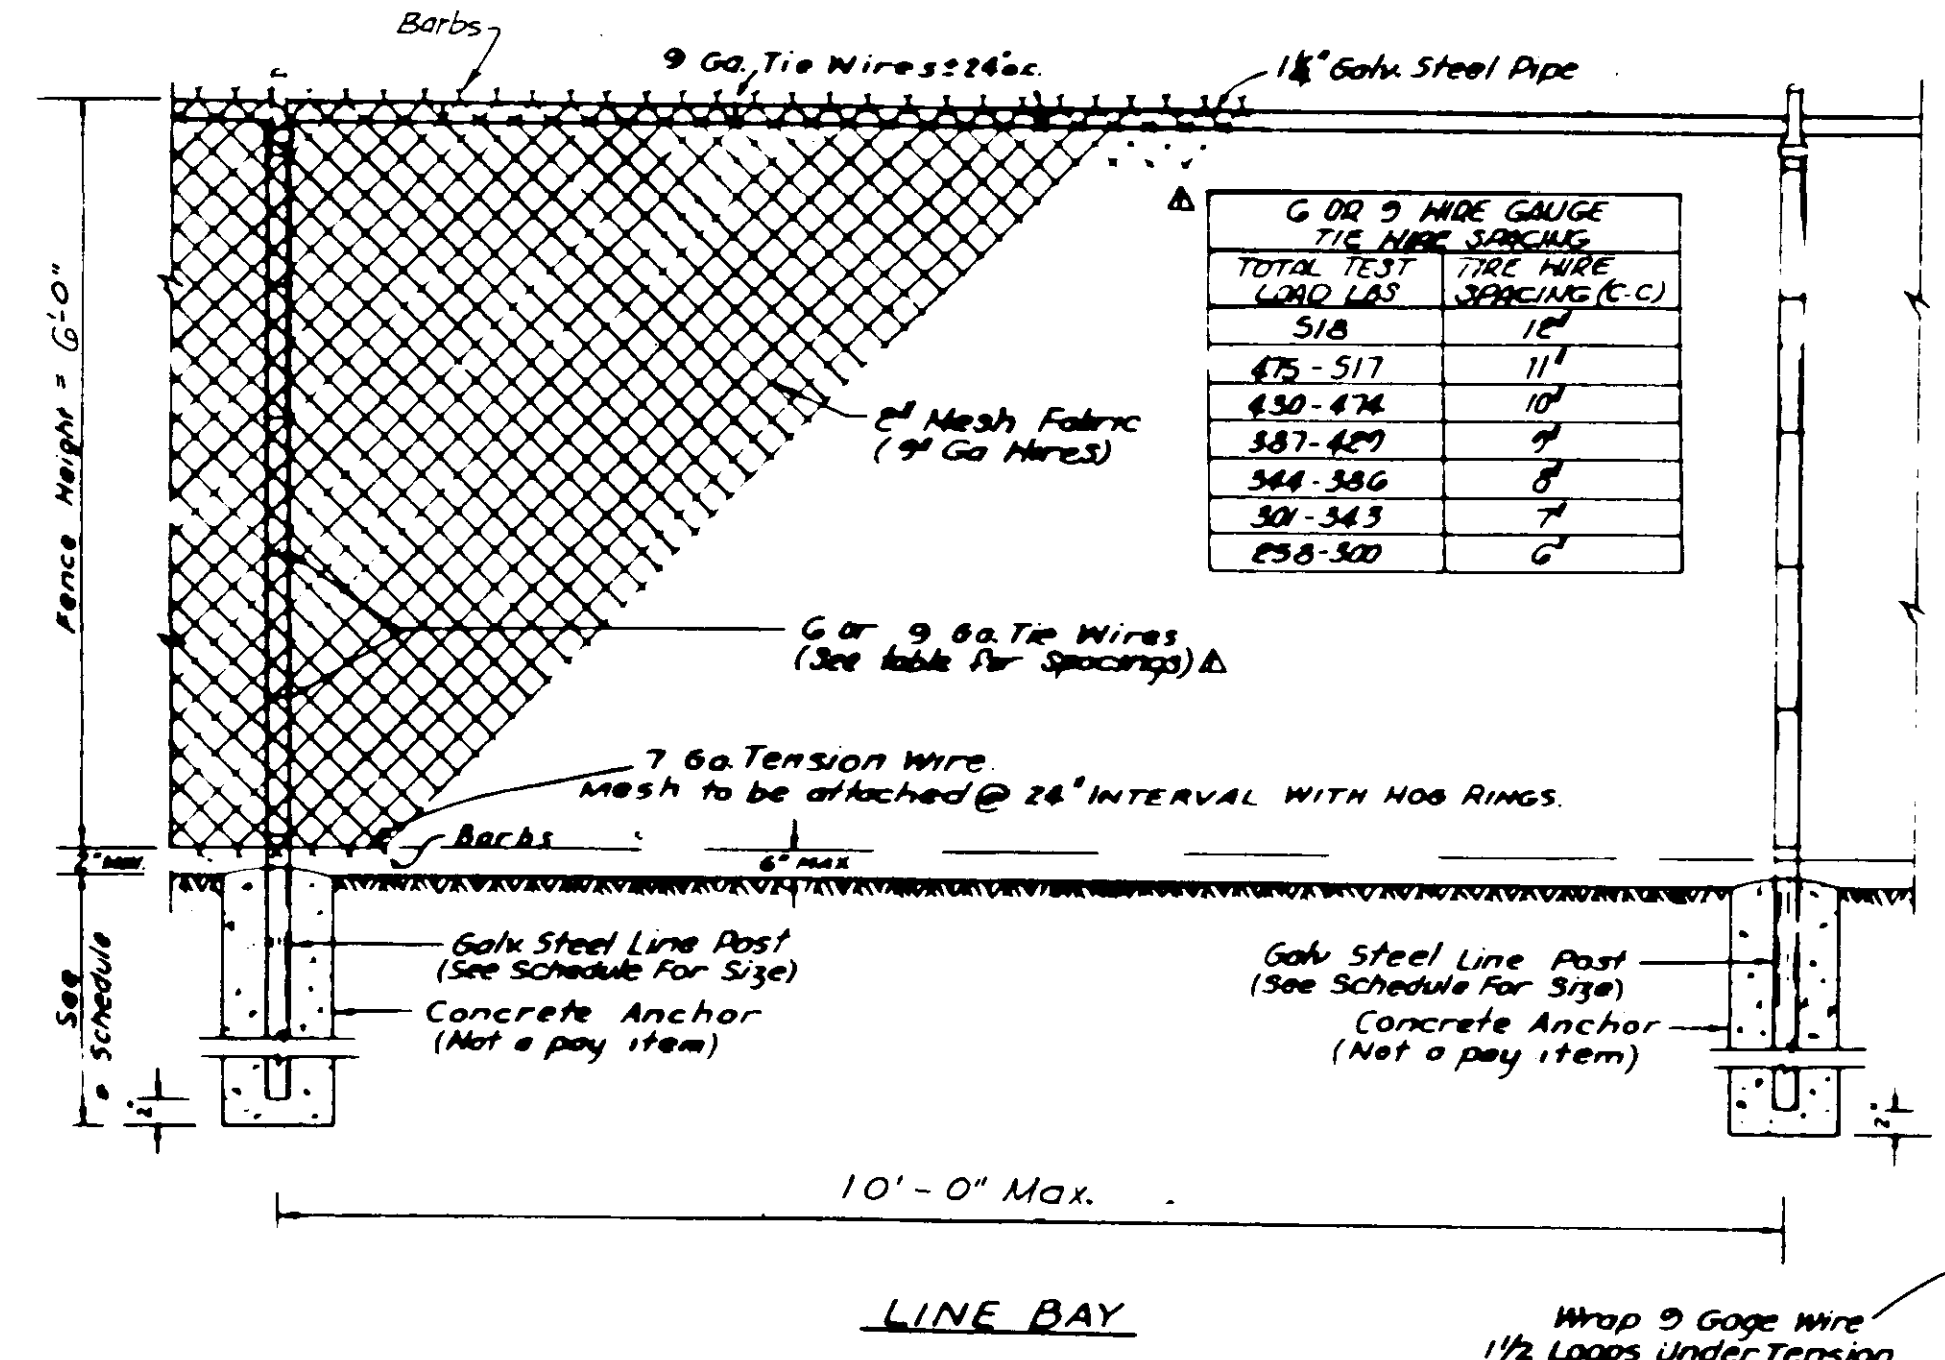 Barbs
9 Ga. Tie Wires ± 24" oc.
1¼" Galv. Steel Pipe
6 OR 9 WIRE GAUGE
TIE WIRE SPACING
TOTAL TEST LOAD LBS
TIRE WIRE SPACING (C-C)
518 12"
475 - 517 11"
430 - 474 10"
387 - 429 9"
344 - 386 8"
301 - 343 7"
258 - 300 6"
Fence Height = 6'-0"
2" Mesh Fabric
(9" Ga Wires)
6 or 9 Ga. Tie Wires
(See table for Spacings)
7 Ga. Tension Wire
Mesh to be attached @ 24" INTERVAL WITH HOG RINGS.
Barbs
2" MAX.
6" MAX
See Schedule
Galv. Steel Line Post
(See Schedule For Size)
Concrete Anchor
(Not a pay item)
Galv Steel Line Post
(See Schedule For Size)
Concrete Anchor
(Not a pay item)
2"
2"
10'-0" Max.
LINE BAY
Wrap 9 Gage Wire
1 1/2 Loops Under Tension